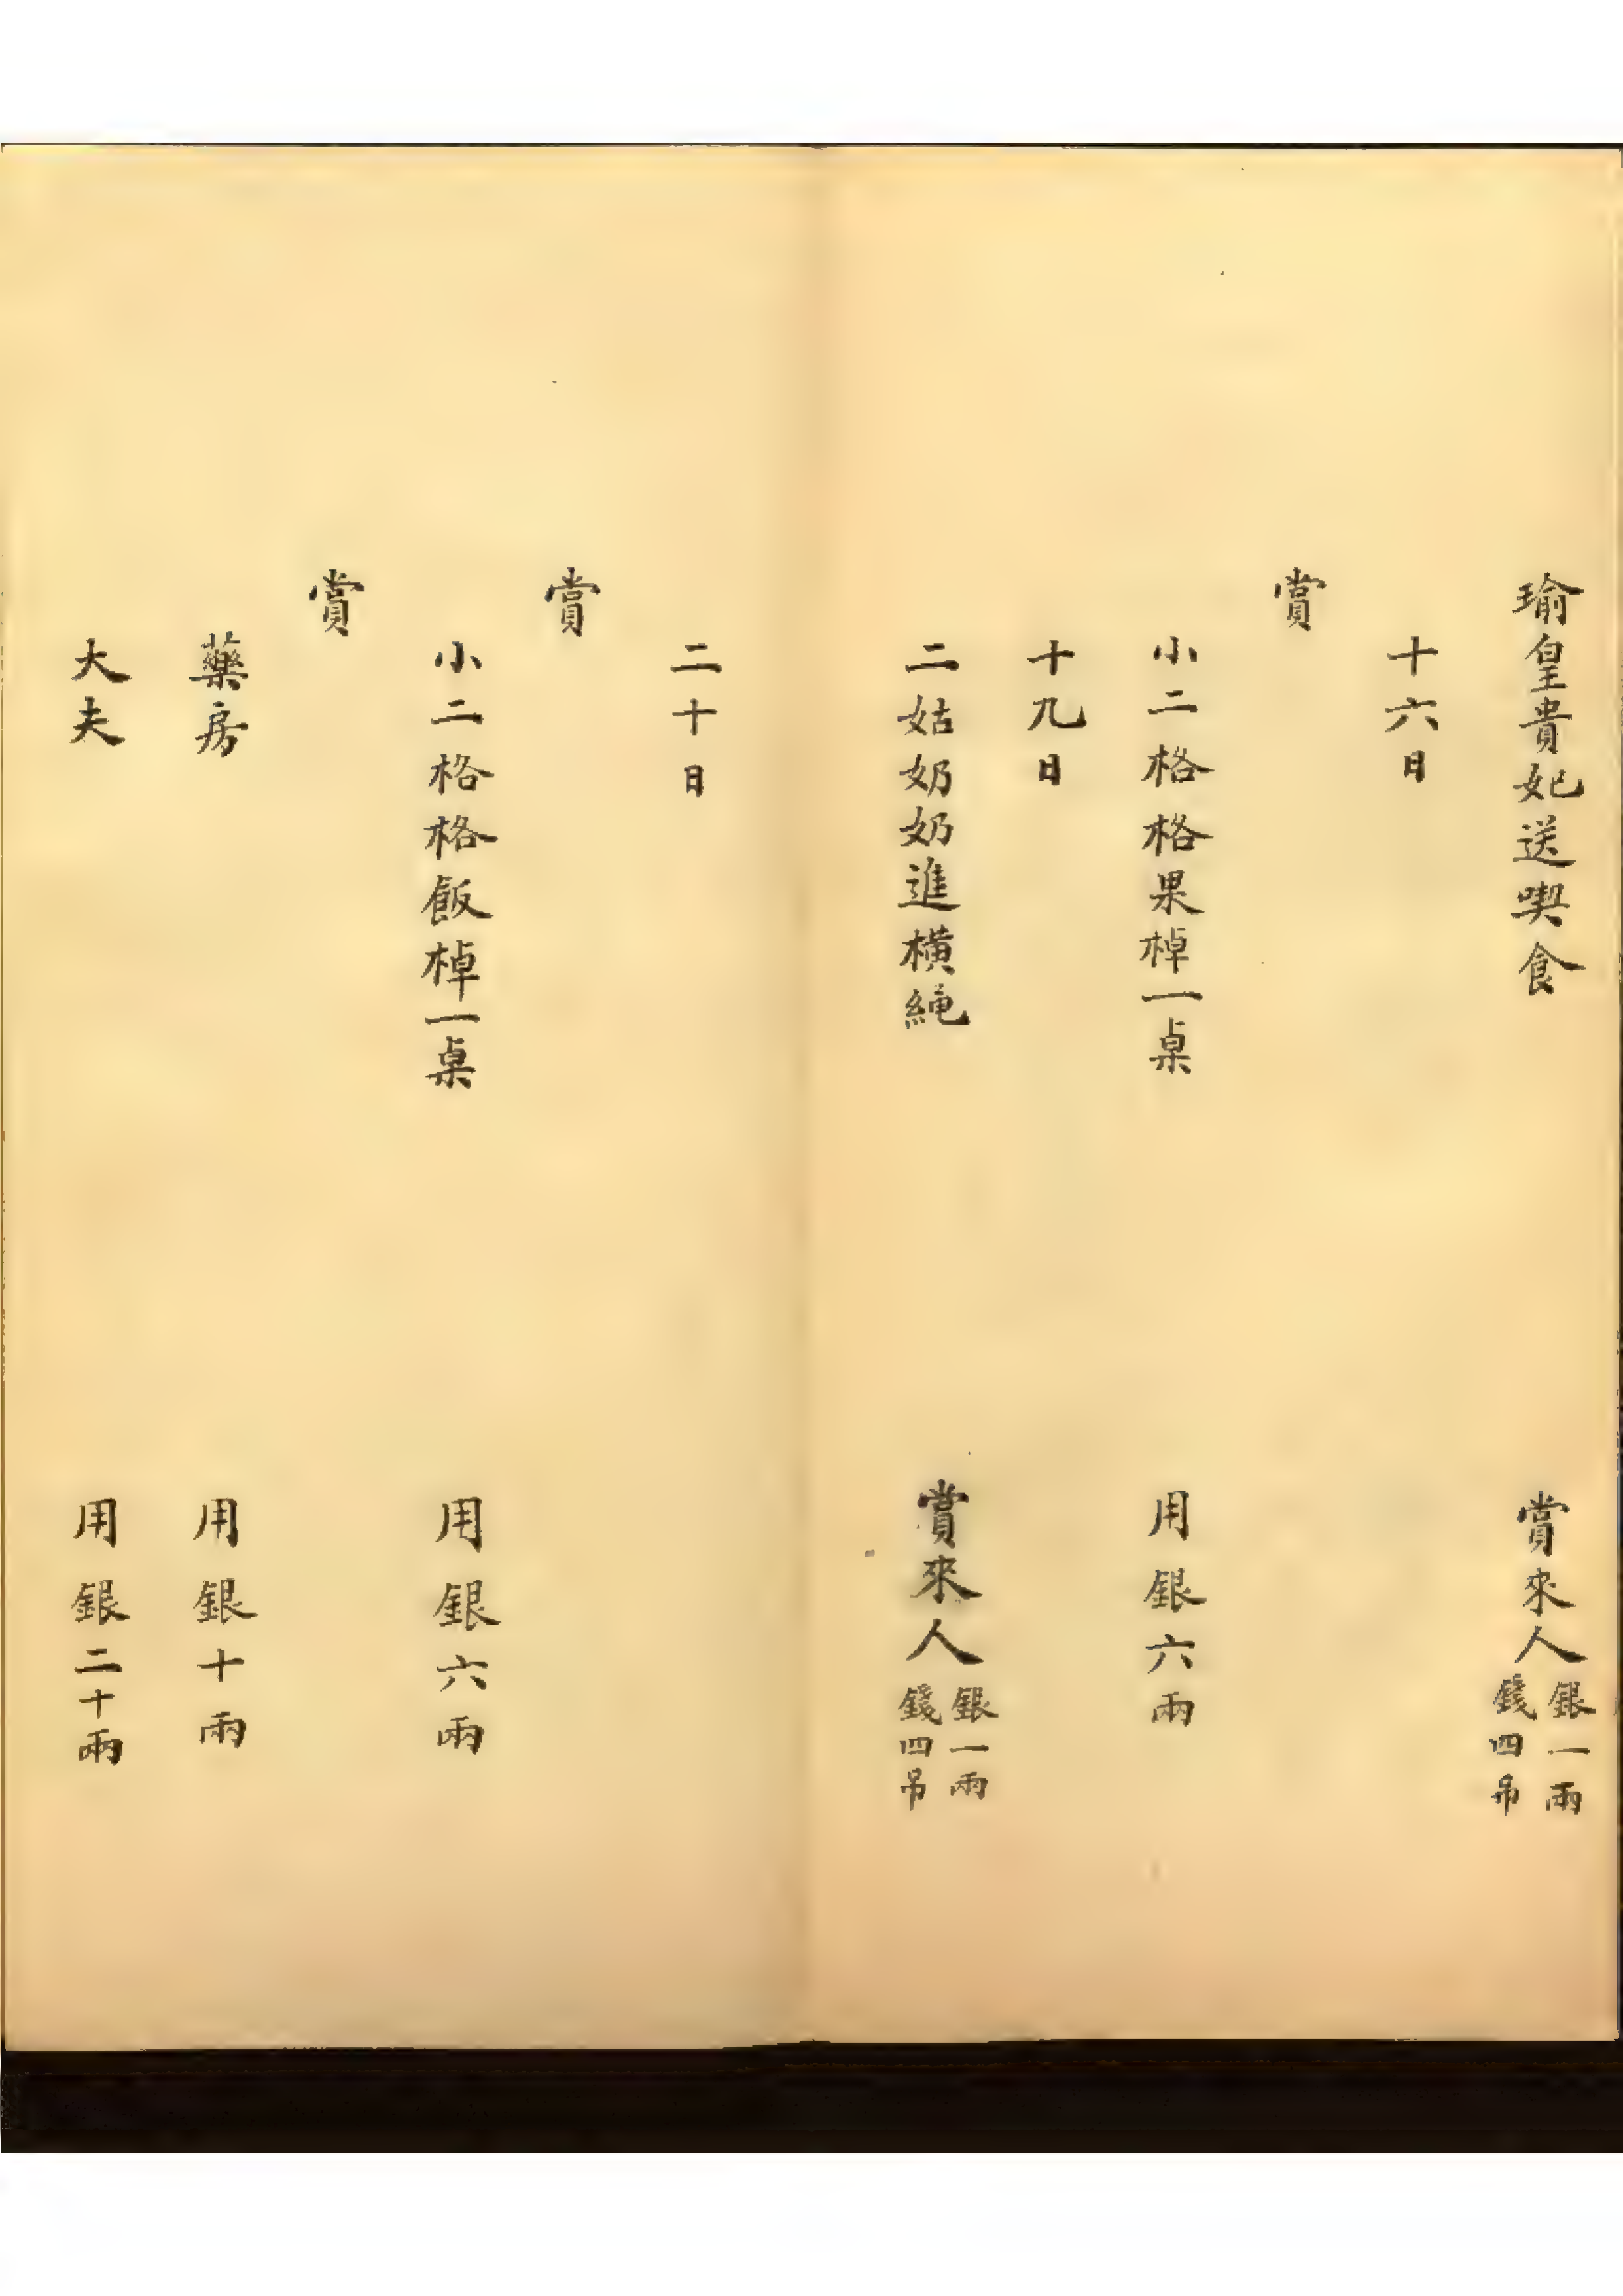 瑜皇貴妃送喫食 賞來人 銀一兩 錢四吊
十六日
賞
小二格格果棹一桌 用銀六兩
十九日
二姑奶奶進橫繩 賞來人 銀一兩 錢四吊
二十日
賞
小二格格飯棹一桌 用銀六兩
賞
藥房 用銀十兩
大夫 用銀二十兩